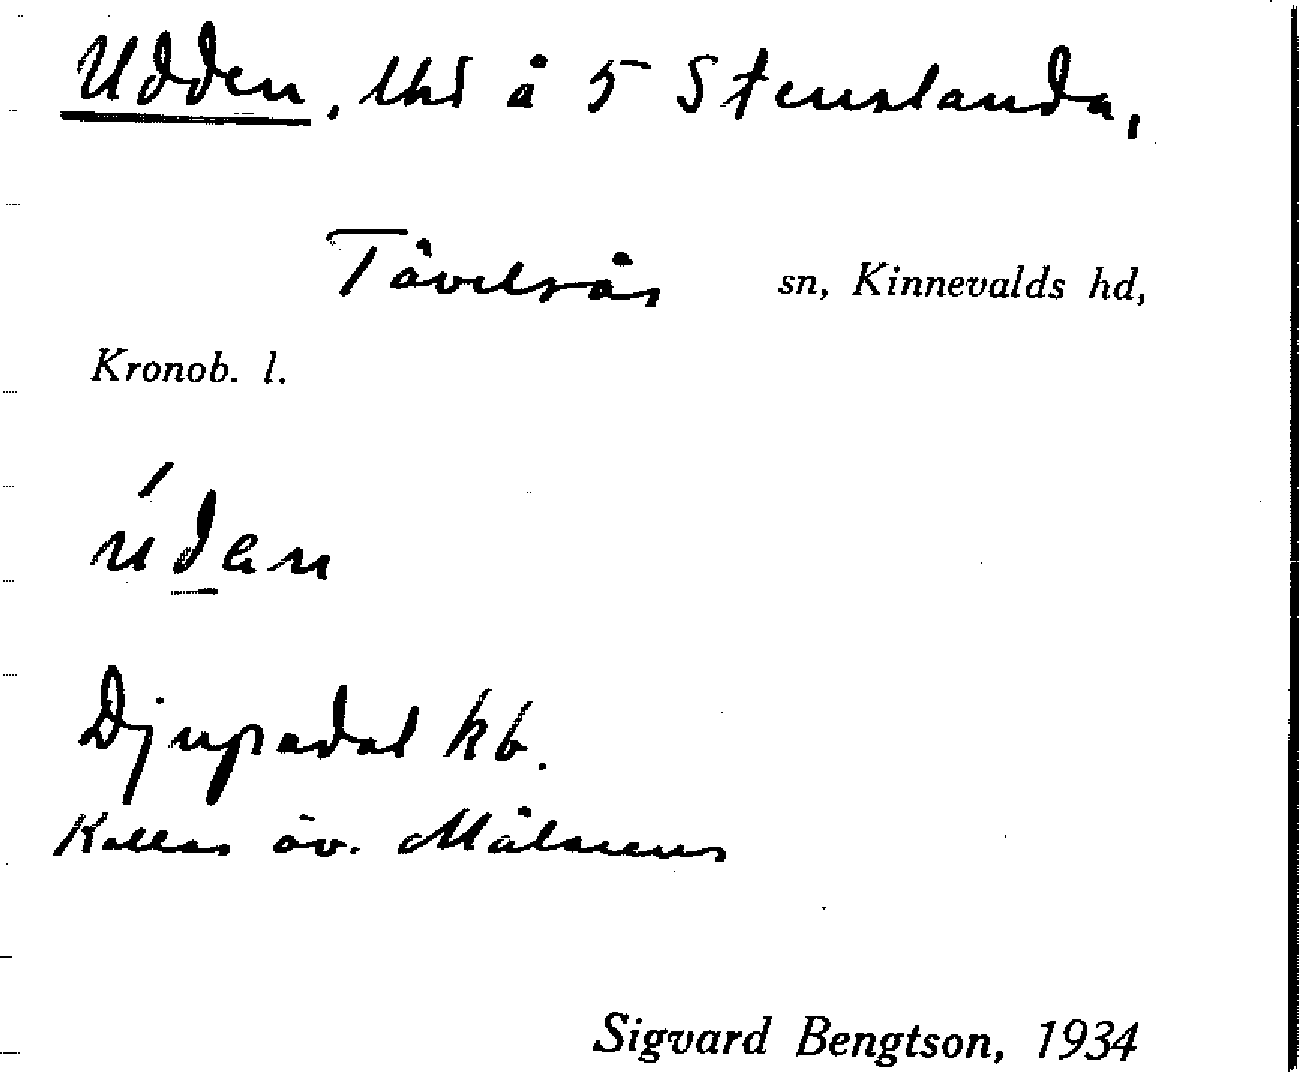 Udden, lhs å 5 Stenslanda,
Tävelsås sn, Kinnevalds hd,
Kronob. l.
údan
Djupadal kb.
Kallas äv. Målarens
Sigvard Bengtson, 1934